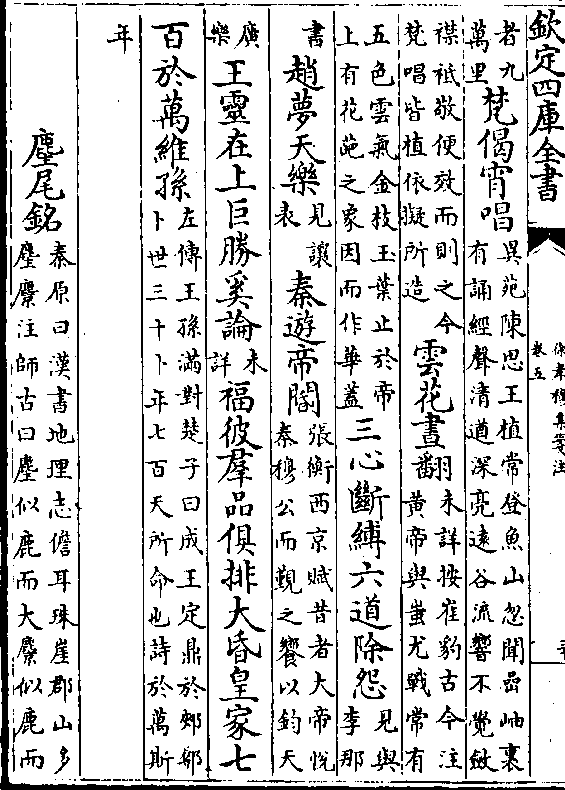 欽定四庫全書
徐孝穆集箋注
卷五
者九
萬里
梵偈宵唱
異苑陳思王植常登魚山忽聞嵒岫裏
有誦經聲清遒深亮遠谷流響不覺斂
襟祗敬便效而則之今
梵唱皆植依擬所造
雲花晝翻
未詳按崔豹古今注
黃帝與蚩尤戰常有
五色雲氣金枝玉葉止於帝
上有花葩之象因而作華蓋
三心斷縛六道除怨
見與
李那
書
趙夢天樂
見讓
表
秦遊帝閽
張衡西京賦昔者大帝悅
秦穆公而覲之饗以鈞天
廣
樂
王靈在上巨勝奚論
未
詳
福彼羣品俱排大昏皇家七
百於萬維孫
左傳王孫滿對楚子曰成王定鼎於郟鄏
卜世三十卜年七百天所命也詩於萬斯
年
麈尾銘
秦原曰漢書地理志儋耳珠崖郡山多
麈麖注師古曰麈似鹿而大麖似鹿而